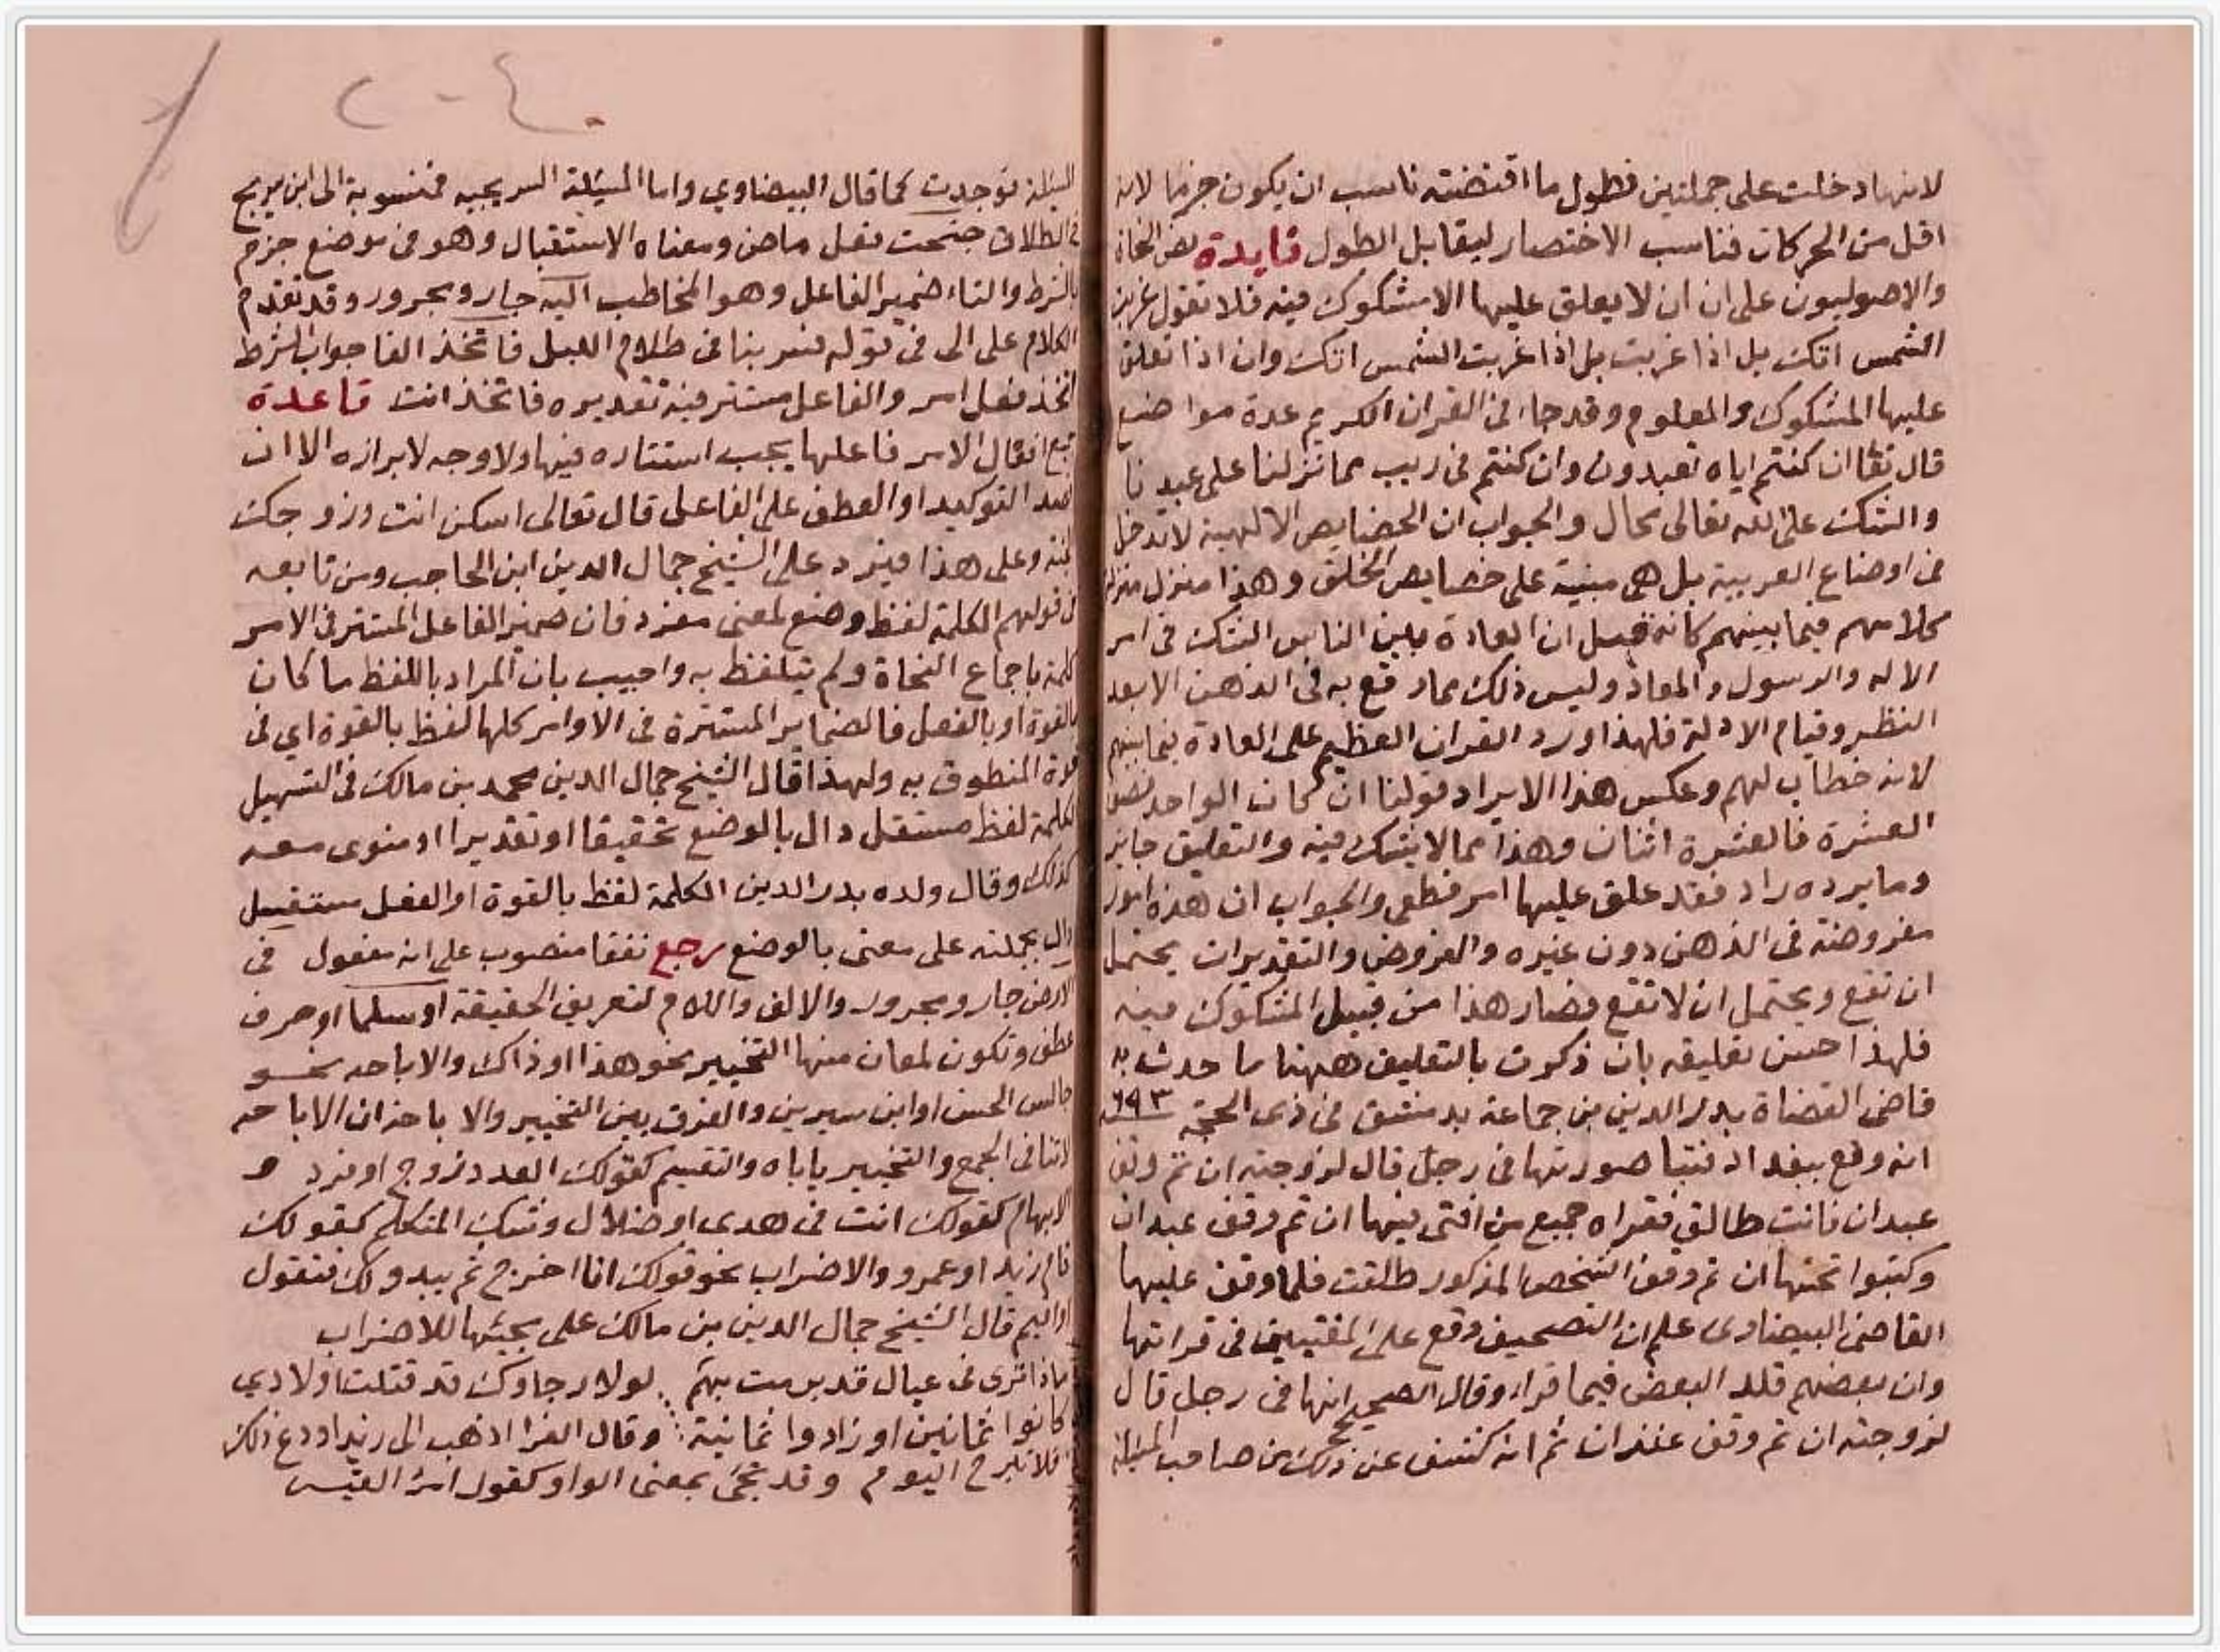 لانها دخلت على جملتين فطول ما اقتضته ناسب ان يكون جزما لانه
اقل من الحركات فناسب الاختصار ليقابل الطول فايدة نص النحاة
والاصوليون على ان ان لا يعلق عليها الا مشكوك فيه فلا تقول ان غربت
الشمس اتك بل اذا غربت بل اذا غربت الشمس اتك وان اذا تعلق
عليها المشكوك والمعلوم وقد جاء في القران الكريم عدة مواضع
قال تعا ان كنتم اياه تعبدون وان كنتم في ريب مما نزلنا على عبدنا
والشك على الله تعالى محال والجواب ان الخصايص الالهية لا تدخل
في اوضاع العربية بل هي مبنية على خصايص الخلق وهذا منزل منزلة
كلامهم فيما بينهم كانه قيل ان العادة بين الناس الشك في امر
الاله والرسول والمعاد وليس ذلك مما وقع به في الذهن الا بعد
النظر وقيام الادلة فلهذا ورد القران العظيم على العادة فيما بينهم
لانه خطاب لهم وعكس هذا الايراد قولنا ان كان الواحد نصف
العشرة فالعشرة اثنان وهذا مما لا يشك فيه والتعليق جايز
وما يرده راد فقد علق عليها امر قطعي والجواب ان هذه امور
مفروضة في الذهن دون غيره والفروض والتقديرات يحتمل
ان تقع ويحتمل ان لا تقع فصار هذا من قبيل المشكوك فيه
فلهذا حسن تعليقه بان ذكرت بالتعليق ههنا ما حدث به
قاضى القضاة بدر الدين بن جماعة بدمشق في ذى الحجة ٦٩٣
انه وقع ببغداد فتيا صورتها في رجل قال لزوجته ان تم وقف
عبدان فانت طالق فقراه جميع من افتى فيها ان تم وقف عبدان
وكتبوا تحتها ان تم وقف الشخص المذكور طلقت فلما وقف عليها
القاضى البيضاوى علم ان التصحيف وقع على المفتيين في قراتها
وان بعضهم قلد البعض فيما قراه وقال الصحيح انها في رجل قال
لزوجته ان تم وقف عند ان ثم انه كشف عن ذلك من صاحب المسئلة
المسئلة فوجدت كما قال البيضاوي واما المسيلة السريجيه فمنسوبة الى ابن سريج
في الطلاق جنحت فعل ماض ومعناه الاستقبال وهو في موضع جزم
بالشرط والتاء ضمير الفاعل وهو المخاطب اليه جار ومجرور وقد تقدم
الكلام على الى في قوله فسر بنا في ظلام الليل فاتخذ الفا جواب الشرط
اتخذ فعل امر والفاعل مستتر فيه تقديره فاتخذ انت قاعدة
جميع افعال الامر فاعلها يجب استتاره فيها ولا وجه لابرازه الا ان
قصد التوكيد او العطف على الفاعل قال تعالى اسكن انت وزوجك
الجنة وعلى هذا فيرد على الشيخ جمال الدين ابن الحاجب ومن تابعه
في قولهم الكلمة لفظ وضع لمعنى مفرد فان ضمير الفاعل المستتر في الامر
كلمة باجماع النحاة ولم يتلفظ به واجيب بان المراد باللفظ ما كان
بالقوة او بالفعل فالضماير المستترة في الاوامر كلها لفظ بالقوة اي في
قوة المنطوق به ولهذا قال الشيخ جمال الدين محمد بن مالك في التسهيل
الكلمة لفظ مستقل دال بالوضع تحقيقا او تقديرا او منوى معه
كذلك وقال ولده بدر الدين الكلمة لفظ بالقوة او الفعل مستقل
دال بجملته على معنى بالوضع رجع نفقا منصوب على انه مفعول في
الارض جار ومجرور والالف واللام لتعريف الحقيقة او سلما او حرف
عطف وتكون لمعان منها التخيير نحو هذا او ذاك والاباحه نحو
جالس الحسن او ابن سيرين والفرق بين التخيير والا باحة ان الاباحه
لا تنافى الجمع والتخيير ياباه والتقسيم كقولك العدد زوج او فرد و
الابهام كقولك انت في هدى او ضلال وشك المتكلم كقولك
قام زيد او عمرو والاضراب نحو قولك انا اخرج ثم يبدو لك فتقول
او اقيم قال الشيخ جمال الدين بن مالك على مجيئها للاضراب
ماذا ترى في عيال قد برمت بهم لولا رجاوك قد قتلت اولادي
كانوا ثمانين او زادوا ثمانية وقال الفرا اذهب الى زيد او دع ذلك
فلا تبرح اليوم وقد تجئ بمعنى الواو كقول امرا القيس